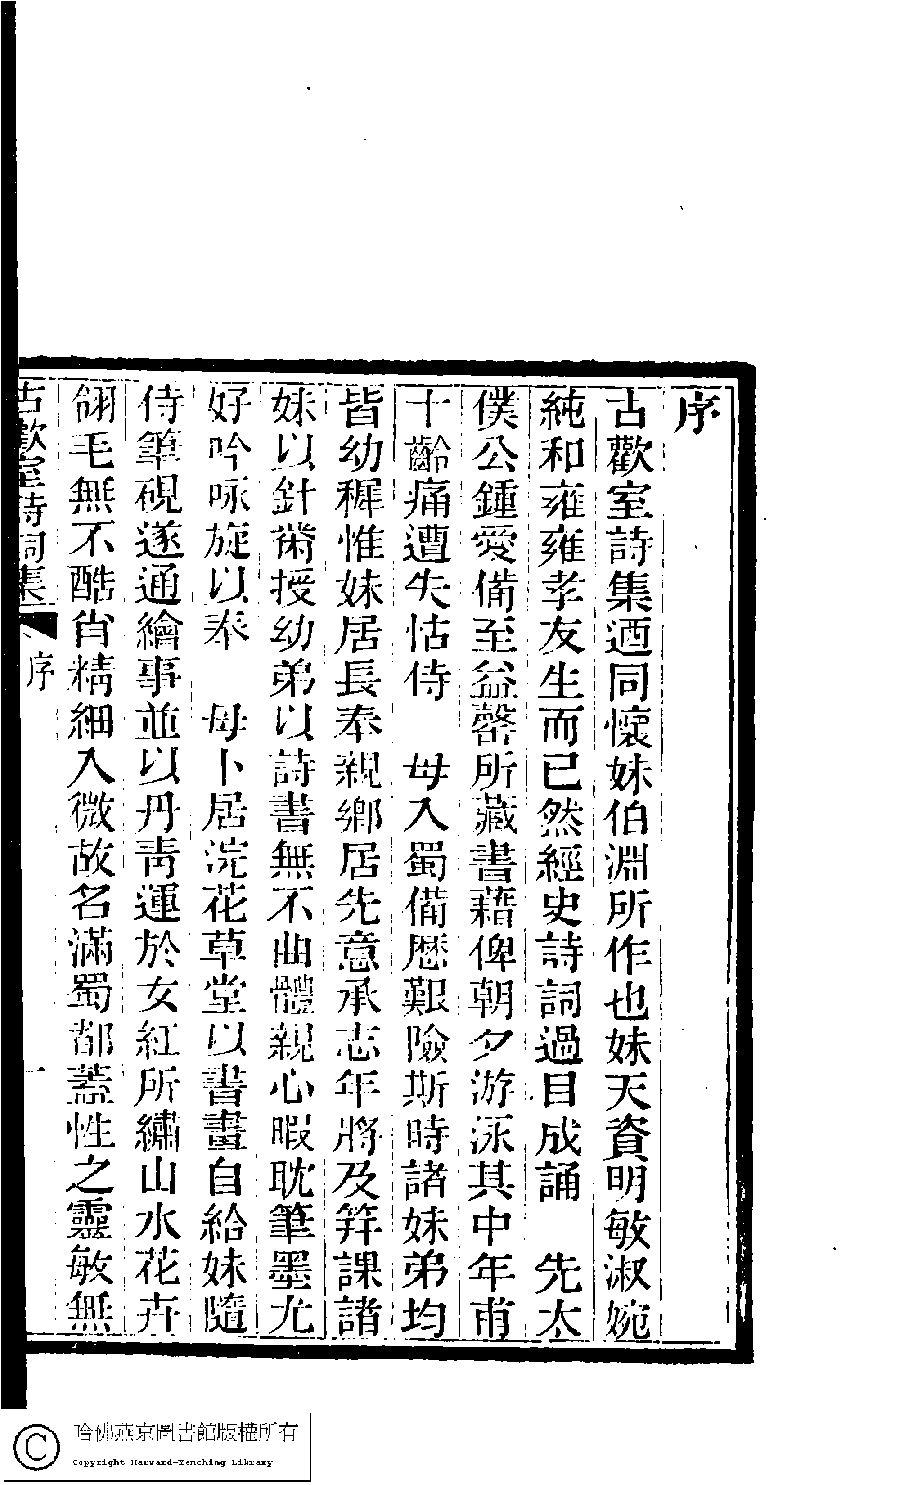 序
古歡室詩集迺同懷妹伯淵所作也妹天資明敏淑婉
純和雍雍孝友生而已然經史詩詞過目成誦　先太
僕公鍾愛備至益罄所藏書藉俾朝夕游泳其中年甫
十齡痛遭失怙侍　母入蜀備歷艱險斯時諸妹弟均
皆幼穉惟妹居長奉親鄉居先意承志年將及笄課諸
妹以針黹授幼弟以詩書無不曲體親心暇耽筆墨尤
好吟咏旋以奉　母卜居浣花草堂以書畫自給妹隨
侍筆硯遂通繪事並以丹靑運於女紅所繡山水花卉
翎毛無不酷肖精細入微故名滿蜀都蓋性之靈敏無
古歡室詩詞集　序　一
哈佛燕京圖書館版權所有
Copyright Harvard-Yenching Library